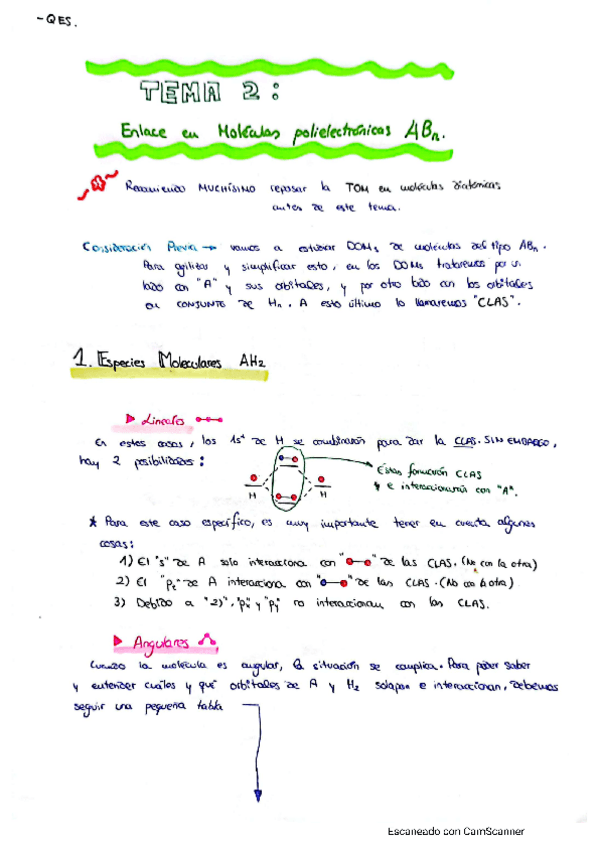 -QES.
TEMA 2:
Enlace en Moléculas polielectrónicas ABn.
Recomiendo MUCHÍSIMO repasar la TOM en moléculas diatómicas
antes de este tema.
Consideración Previa → vamos a estudiar DOMs de moléculas del tipo ABn.
Para agilizar y simplificar esto, en los DOMs trataremos por un
lado con "A" y sus orbitales, y por otro lado con los orbitales
en CONJUNTO de Hn. A esto último lo llamaremos "CLAS".
1. Especies Moleculares AH2
▶ Lineales
En estos casos, los 1s¹ de H se combinarán para dar la CLAS. SIN EMBARGO,
hay 2 posibilidades:
Éstas formarán CLAS
y e interaccionarán con "A".
H H
* Para este caso específico, es muy importante tener en cuenta algunas
cosas:
1) El "s" de A solo interacciona con " " de las CLAS. (No con la otra)
2) El "pz" de A interacciona con " " de las CLAS. (No con la otra)
3) Debido a "2)", "px" y "py" no interaccionan con las CLAS.
▶ Angulares
Cuando la molécula es angular, la situación se complica. Para poder saber
y entender cuáles y qué orbitales de A y H2 solapan e interaccionan, debemos
seguir una pequeña tabla
Escaneado con CamScanner